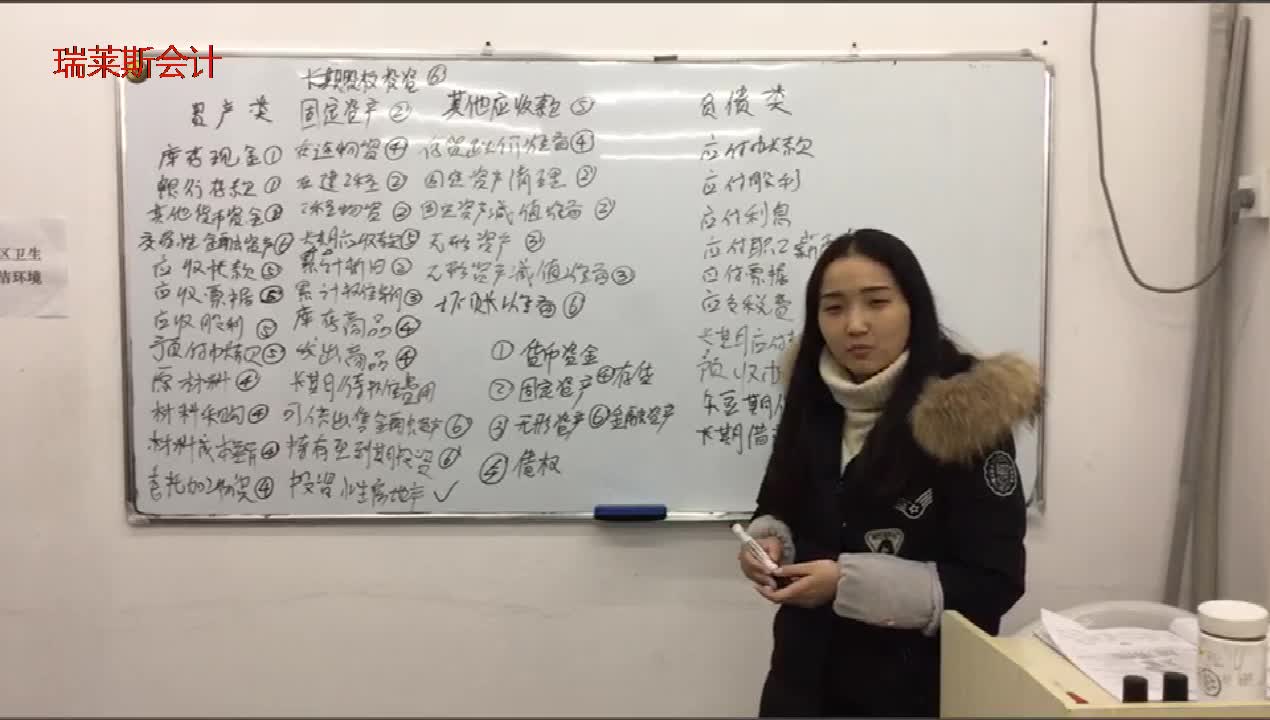 瑞莱斯会计
长期股权投资⑥
资产类 固定资产② 其他应收款⑤ 负债类
库存现金① 在途物资④ 存货跌价准备④ 应付帐款
银行存款① 在建工程② 固定资产清理② 应付股利
其他货币资金① 工程物资② 固定资产减值准备② 应付利息
交易性金融资产⑥ 长期应收款⑤ 无形资产③ 应付职工薪
应收帐款⑤ 累计折旧② 无形资产减值准备③ 应付票据
应收票据⑤ 累计摊销③ 坏账准备⑥ 应交税费
应收股利⑤ 库存商品④ 长期应付
预付帐款⑤ 发出商品④ ①货币资金 预收
原材料④ 长期待摊费用 ②固定资产④存货
材料采购④ 可供出售金融资产⑥ ③无形资产⑥金融资产 长期借
材料成本差异④ 持有至到期投资⑥ ⑤债权
委托加工物资④ 投资性房地产✓
区卫生
洁环境